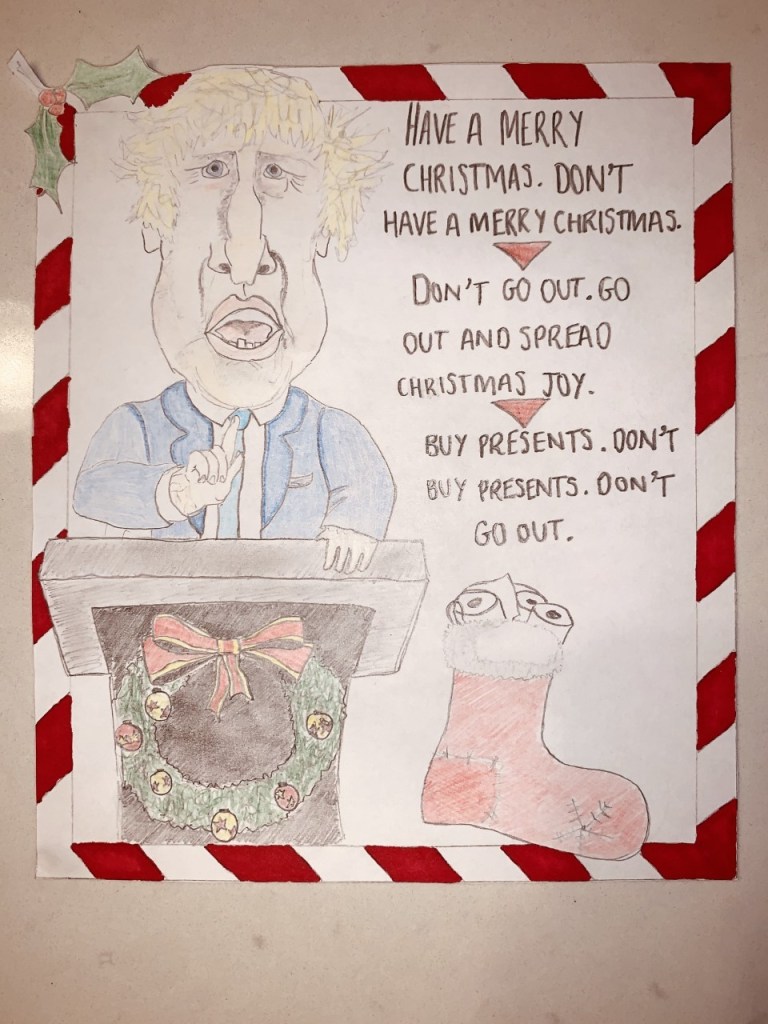 HAVE A MERRY
CHRISTMAS. DON'T
HAVE A MERRY CHRISTMAS.
DON'T GO OUT. GO
OUT AND SPREAD
CHRISTMAS JOY.
BUY PRESENTS. DON'T
BUY PRESENTS. DON'T
GO OUT.